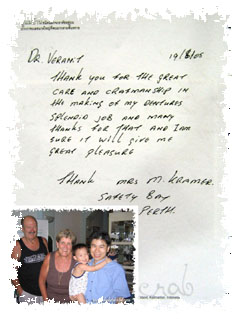 DR. VERANIT 19/8/05
THANK YOU FOR THE GREAT
CARE AND CRATMANSHIP IN
THE MAKING OF MY DENTURES
SPLENDID JOB AND MANY
THANKS FOR THAT AND I AM
SURE IT WILL GIVE ME
GREAT PLEASURE
THANK MRS M. KRAMER.
SAFETY BAY
PERTH.